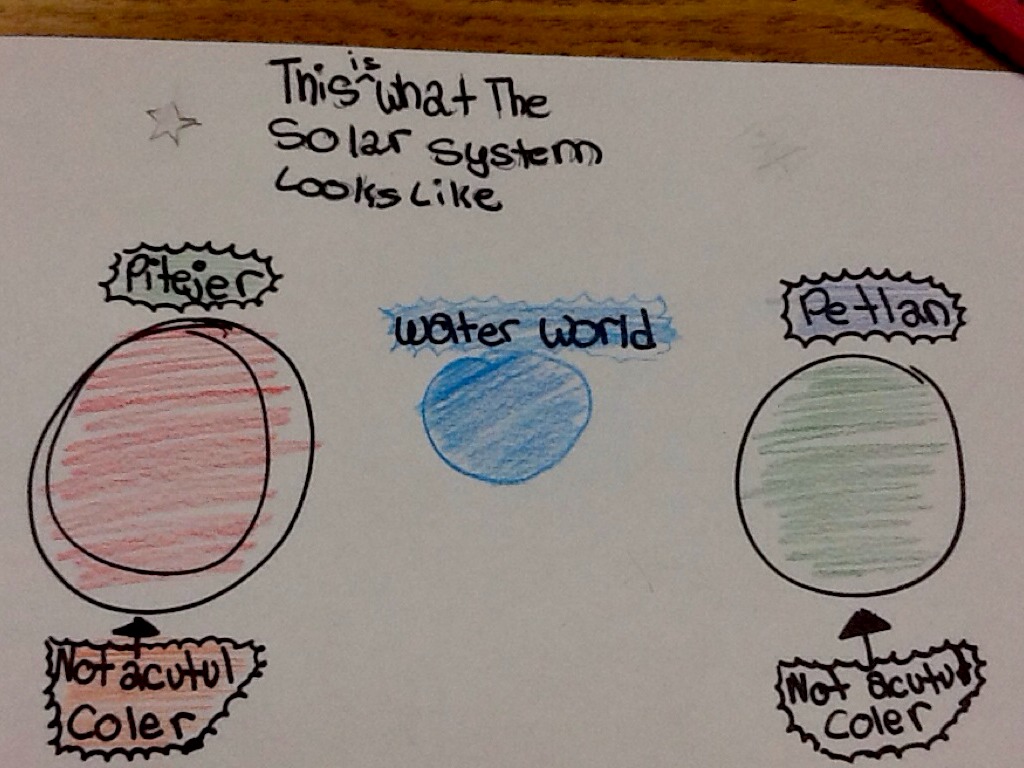 This is what The
Solar System
Looks Like
Pitejer
water world
Petlan
Not acutul
Coler
Not acutul
Coler